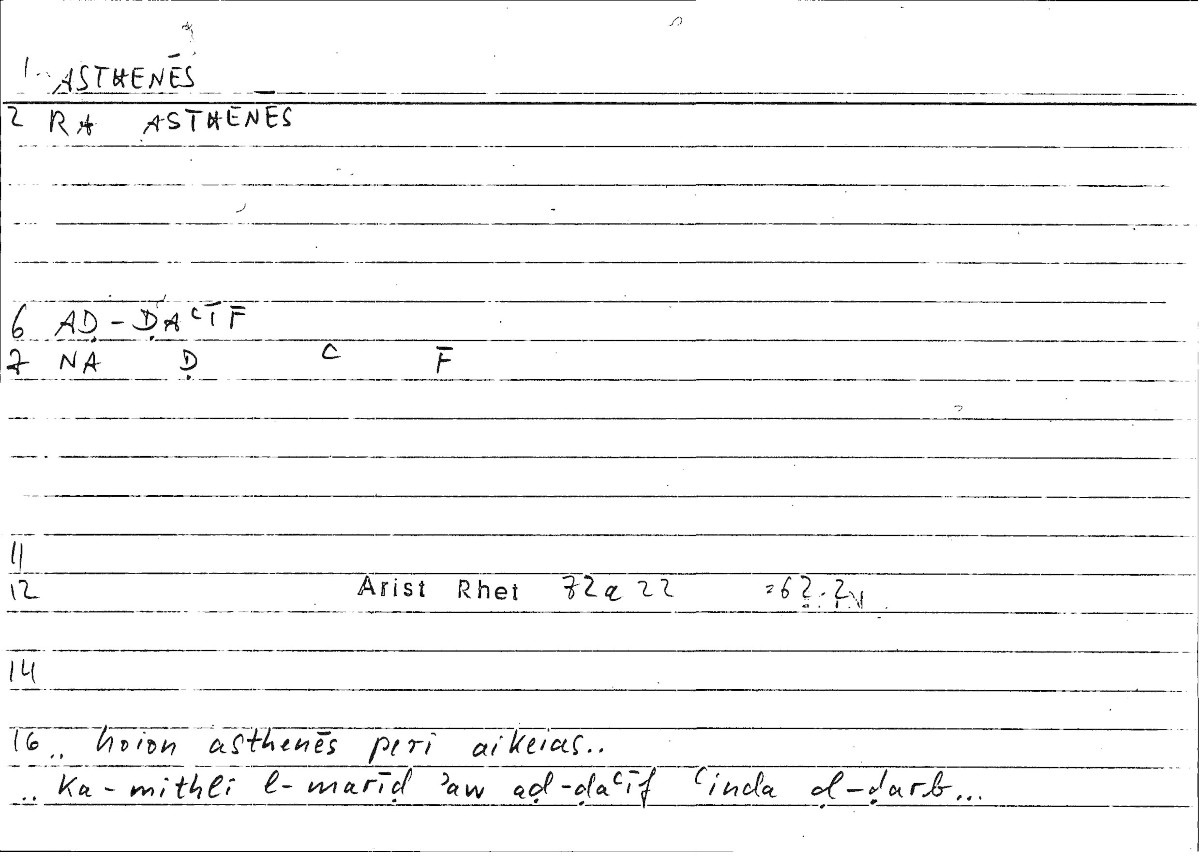 1 ASTHENĒS
2 RA ASTHENES
6 AḌ-ḌAʿĪF
7 NA Ḍ ʿ F
11
12 Arist Rhet 72a 22 =62.2
14
16 .. hoion asthenēs peri aikeias..
.. ka-mithli l-marīḍ ʾaw aḍ-ḍaʿīf ʿinda ḍ-ḍarb...